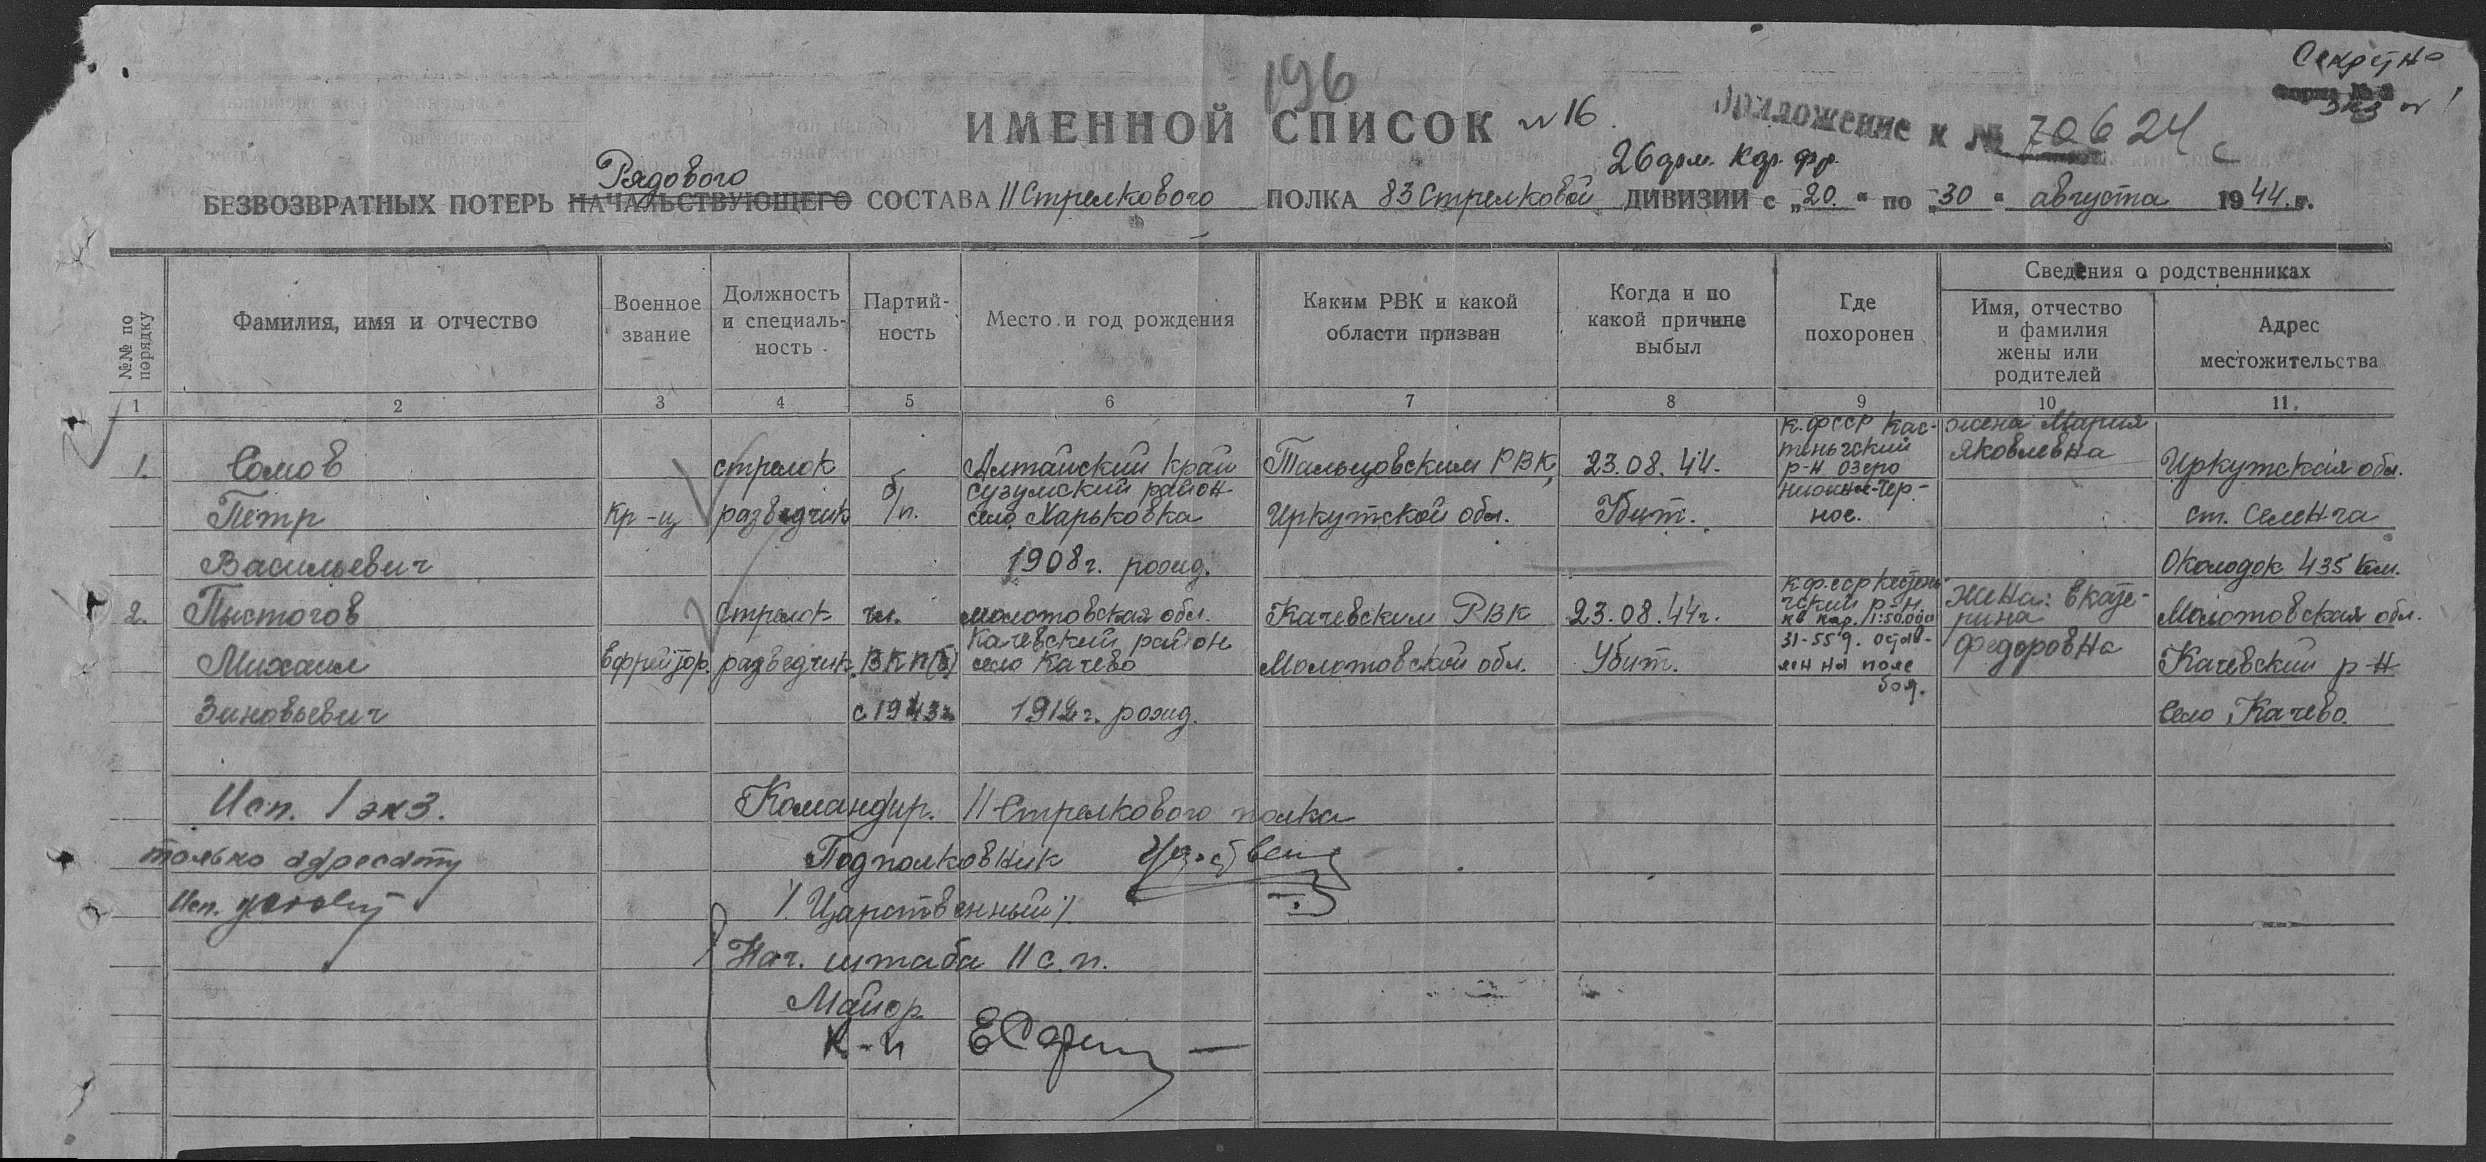 Секретно
Форма № 2
экз № 1
196
ИМЕННОЙ СПИСОК № 16
Приложение к № 70624 с
26 арм. Кар. фр.
Рядового
БЕЗВОЗВРАТНЫХ ПОТЕРЬ НАЧАЛЬСТВУЮЩЕГО СОСТАВА 11 Стрелкового ПОЛКА 83 Стрелковой ДИВИЗИИ с „20“ по „30“ августа 1944 г.
№№ по порядку
Фамилия, имя и отчество
Военное звание
Должность и специаль-ность
Партий-ность
Место и год рождения
Каким РВК и какой области призван
Когда и по какой причине выбыл
Где похоронен
Сведения о родственниках
Имя, отчество и фамилия жены или родителей
Адрес местожительства
1 2 3 4 5 6 7 8 9 10 11.
1. Сомов Петр Васильевич
кр-ц
стрелок разведчик
б/п.
Алтайский край
Сузумский район
село Харьковка
1908 г. рожд.
Тальцовским РВК,
Иркутской обл.
23.08.44.
Убит.
К.ФССР Кас-
теньгский
р-н озеро
Нижне-Чер-
ное.
жена Мария
Яковлевна
Иркутская обл.
ст. Селенга
Околодок 435 км.
2. Пыстогов Михаил Зиновьевич
ефрейтор.
стрелок разведчик
чл.
ВКП(б)
с 1943 г.
Молотовская обл.
Качевский район
село Качево
1912 г. рожд.
Качевским РВК
Молотовской обл.
23.08.44 г.
Убит.
К.ФССР Кестень-
гский р-н.
кв кар. 1:50.000
31-55 9. остав-
лен на поле
боя.
жена: Екате-
рина
Федоровна
Молотовская обл.
Качевский р-н
Село Качево.
Исп. 1 экз.
только адресату
Исп.
Командир. 11 Стрелкового полка
Подполковник
/Царственный/
Нач. штаба 11 с.п.
Майор
К-н